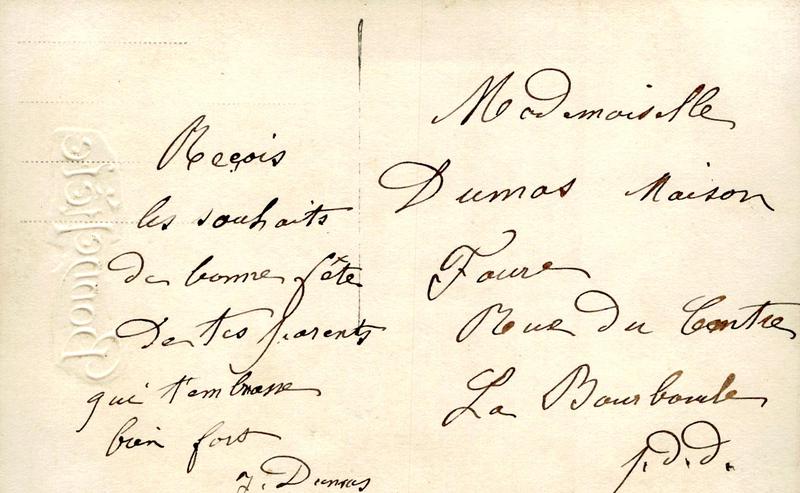 Reçois
les souhaits
de bonne fête
De tes parents
qui t'embrasse
bien fort
J. Dumas
Mademoiselle
Dumas Maison
Faure
Rue du Centre
La Bourboule
p.d.d.
Bonne Fête